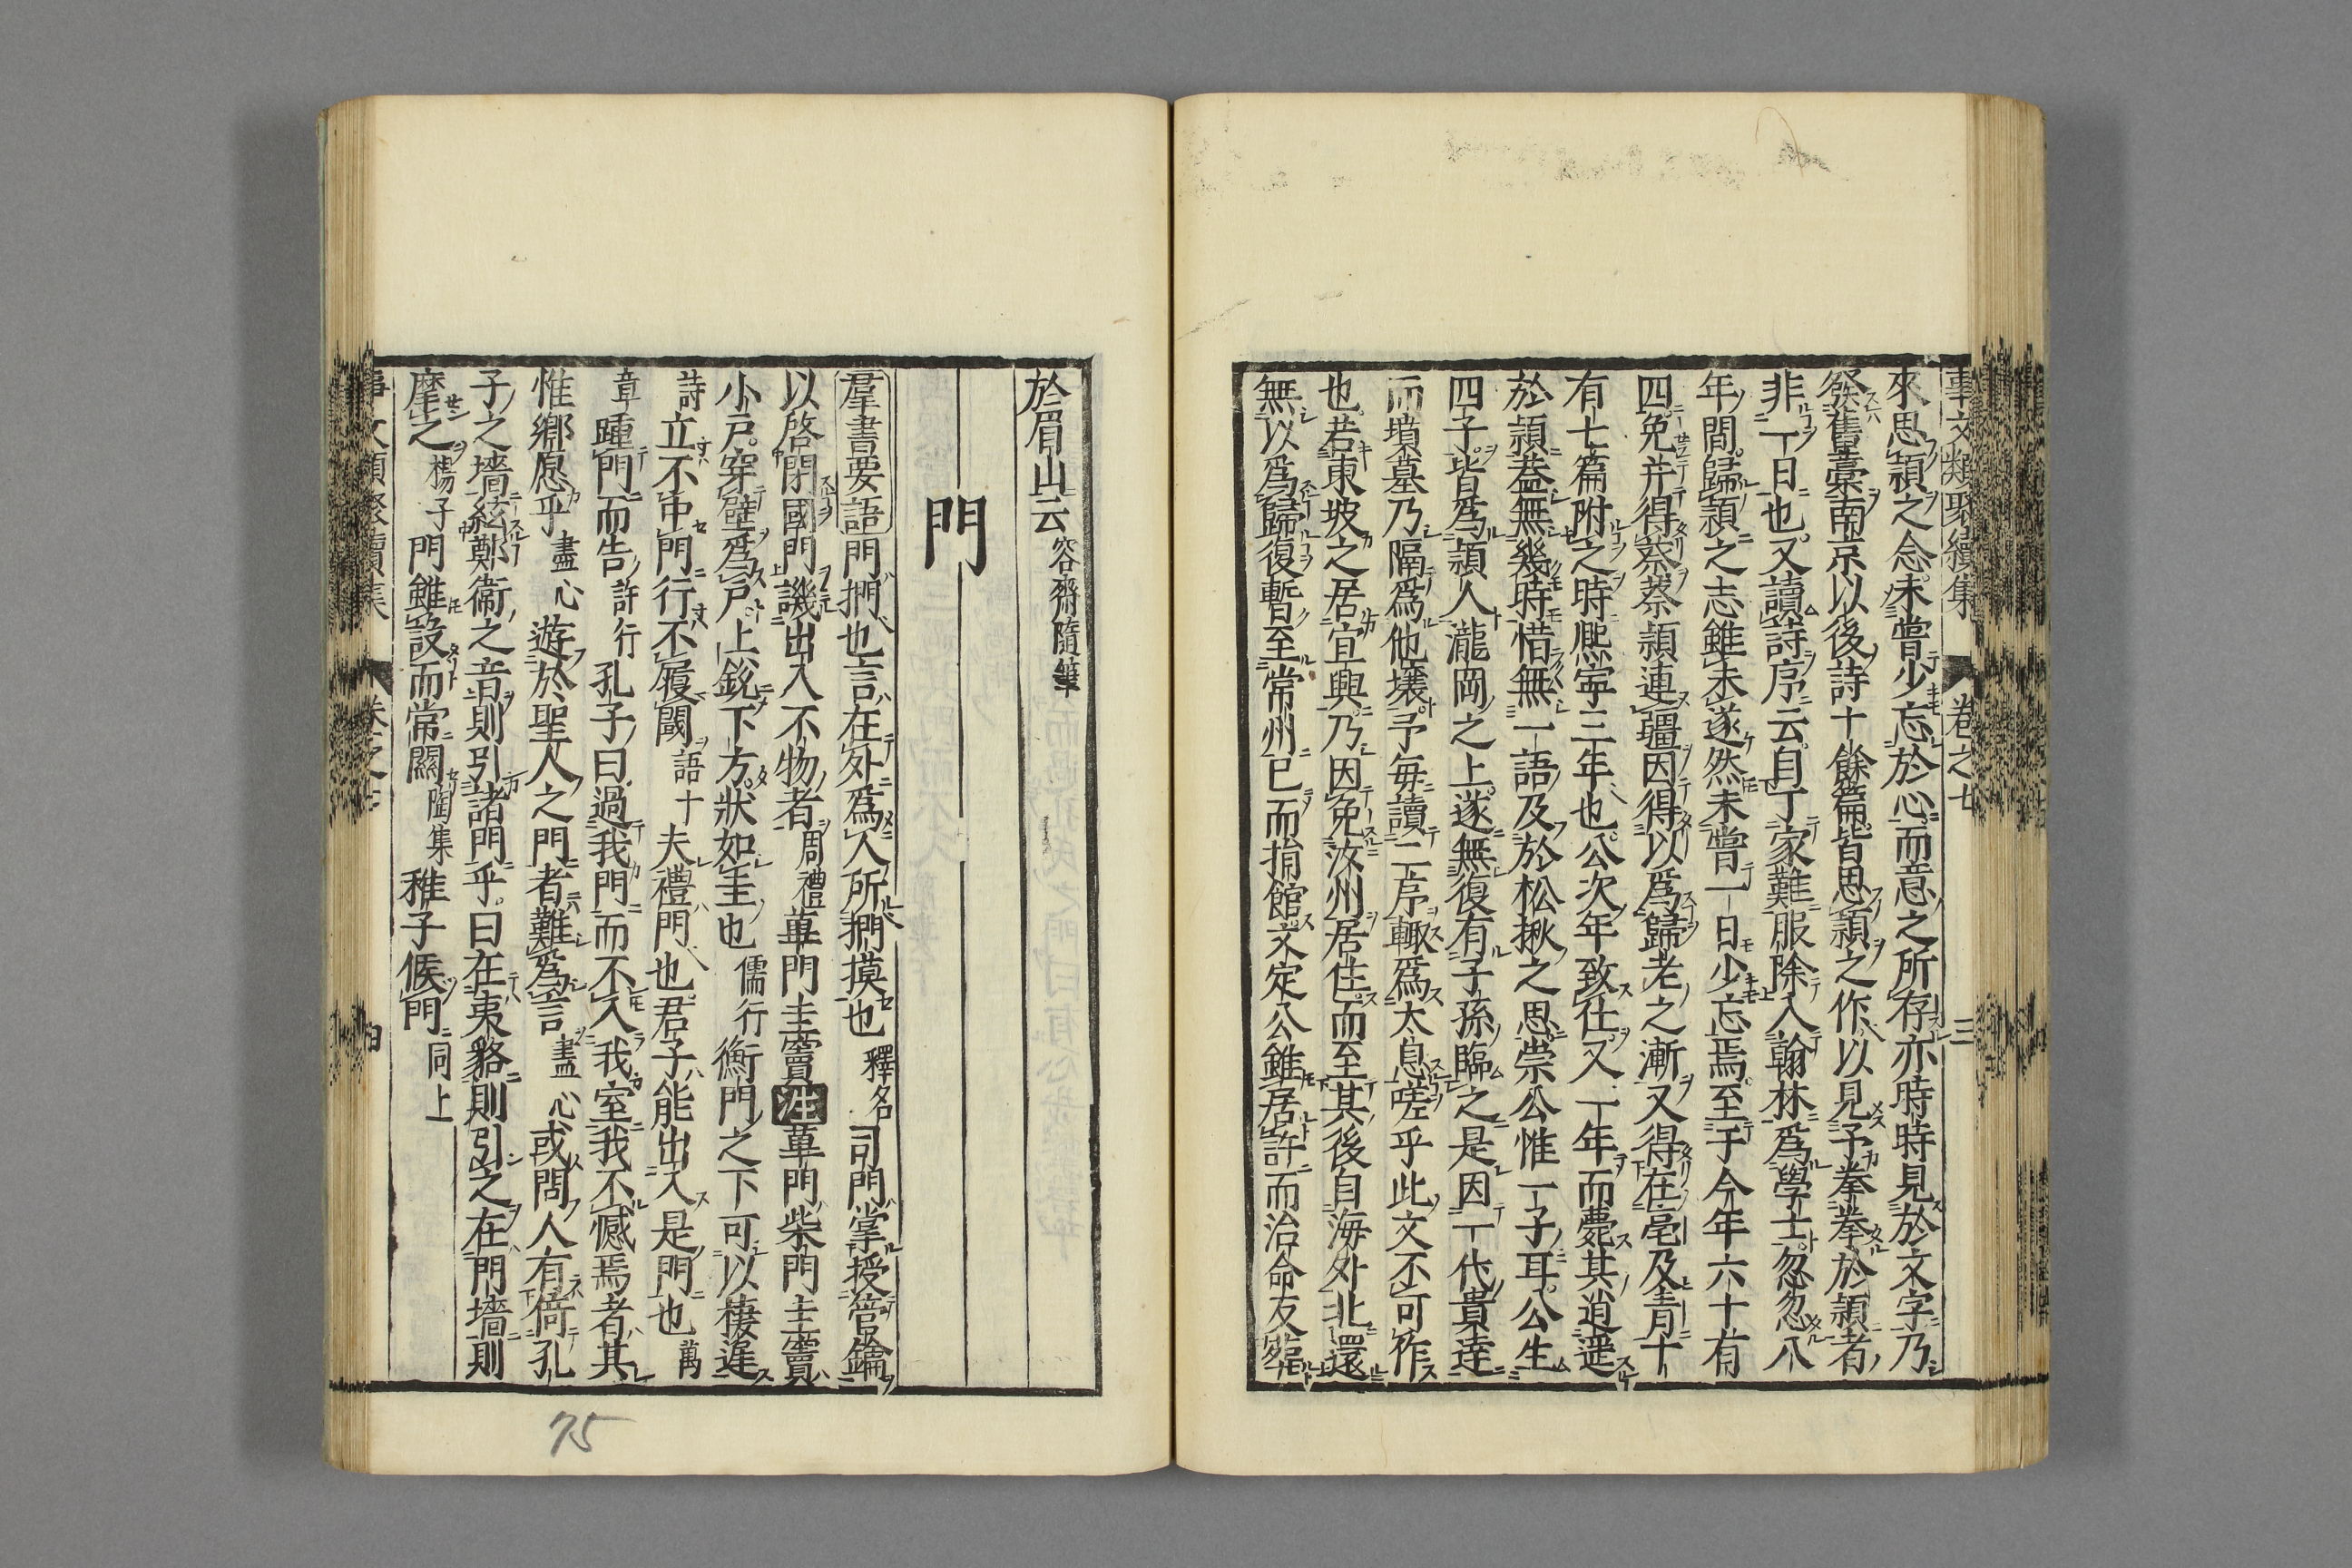 事文類聚續集 卷之七 三
來思潁之念未嘗少忘於心而意之所存亦時時見於文字乃
發舊藁南京以後詩十餘篇皆思潁之作以見予拳拳於潁者
非一日也又讀詩序云自丁家難服除入翰林爲學士忽忽八
年間歸潁之志雖未遂然未嘗一日少忘焉至于今年六十有
四免并得蔡蔡潁連疆因得以爲歸老之漸又得在亳及青十
有七篇附之時熈寧三年也公次年致仕又一年而薨其逍遥
於潁葢無幾時惜無一語及於松楸之思崇公惟一子耳公生
四子皆爲潁人瀧岡之上遂無復有子孫臨之是因一代貴逹
而墳墓乃隔爲他壤予每讀二序輙爲太息嗟乎此文不可作
也若東坡之居宜興乃因免汝州居住而至其後自海外北還
無以爲歸復暫至常州已而捐館文定公雖居許而治命反葬
於眉山云 容齋隨筆
門
羣書要語 門捫也言在外爲人所捫摸也 釋名 司門掌授管鑰
以啓閉國門譏出入不物者 周禮 蓽門圭竇 注 蓽門柴門圭竇
小戸穿壁爲戸上鋭下方狀如圭也 儒行 衡門之下可以棲遲
詩 立不中門行不履閾 語十 夫禮門也君子能出入是門也 萬
章 踵門而告 許行 孔子曰過我門而不入我室我不憾焉者其
惟鄉愿乎 盡心 遊於聖人之門者難爲言 盡心 或問人有倚孔
子之墻絃鄭衞之音則引諸門乎曰在夷貉則引之在門墻則
麾之 楊子 門雖設而常關 陶集 稚子候門 同上
卷之七
75